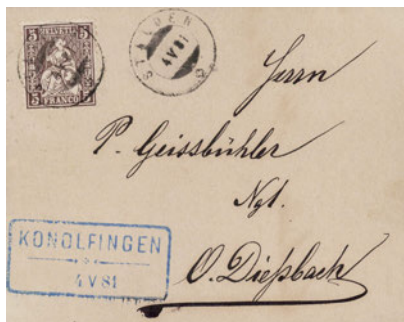 HELVETIA
5 5
5 FRANCO 5
STALDEN
4 V 81
Herrn
P. Geissbühler
Ngt.
O. Dießbach
KONOLFINGEN
4 V 81